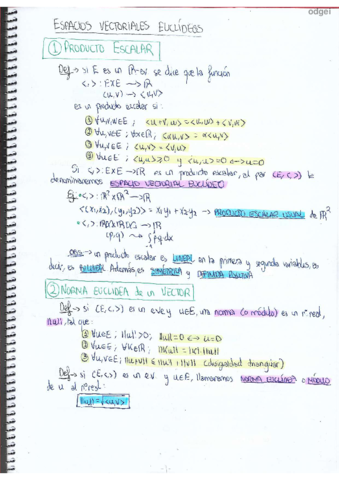 odgei
ESPACIOS VECTORIALES EUCLÍDEOS
① PRODUCTO ESCALAR
Def → si E es un R-ev se dice que la función
<,> : E×E → R
(u,v) → <u,v>
es un producto escalar si:
① ∀u,v,w∈E ; <u+v,w> = <u,w> + <v,w>
② ∀u,v∈E ; ∀α∈R ; <αu,v> = α<u,v>
③ ∀u,v∈E ; <u,v> = <v,u>
④ ∀u∈E ; <u,u> ≥ 0 y <u,u> = 0 ↔ u=0
Si <,> : E×E → R es un producto escalar, al par (E,<,>) le
denominaremos ESPACIO VECTORIAL EUCLÍDEO
Ej → <,> : R²×R² → R
<(x₁,x₂),(y₁,y₂)> = x₁y₁ + x₂y₂ → PRODUCTO ESCALAR USUAL de R²
(p,q)
Obs → un producto escalar es LINEAL en la primera y segunda variables, es
decir, es BILINEAL. Además, es SIMÉTRICA y DEFINIDA POSITIVA
② NORMA EUCLÍDEA de un VECTOR
Def → si (E,<,>) es un eve y u∈E, una norma (o módulo) es un nº real,
||u||, tal que:
① ∀u∈E ; ||u|| ≥ 0 ; ||u|| = 0 ↔ u=0
② ∀u∈E ; ∀K∈R ; ||Ku|| = |K|·||u||
③ ∀u,v∈E ; ||u+v|| ≤ ||u|| + ||v|| (desigualdad triangular)
Def → si (E,<,>) es un e.v. y u∈E, llamaremos NORMA EUCLÍDEA o MÓDULO
de u al nº real:
||u|| = √<u,u>